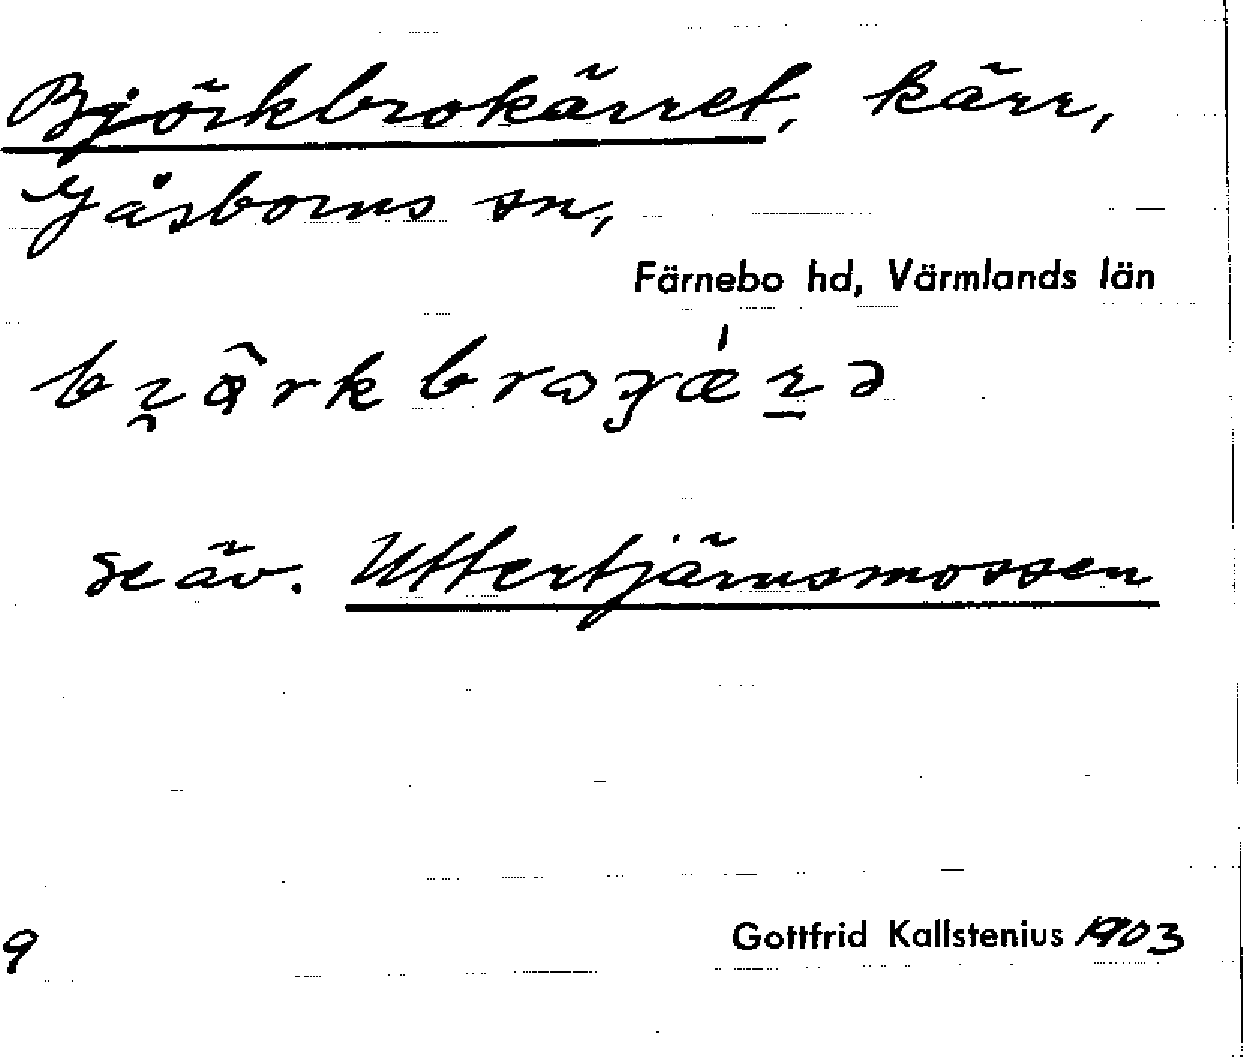 Björkbrokärret, kärr,
Gåsborns sn,
Färnebo hd, Värmlands län
se äv. Uttertjärnsmossen
9
Gottfrid Kallstenius 1903